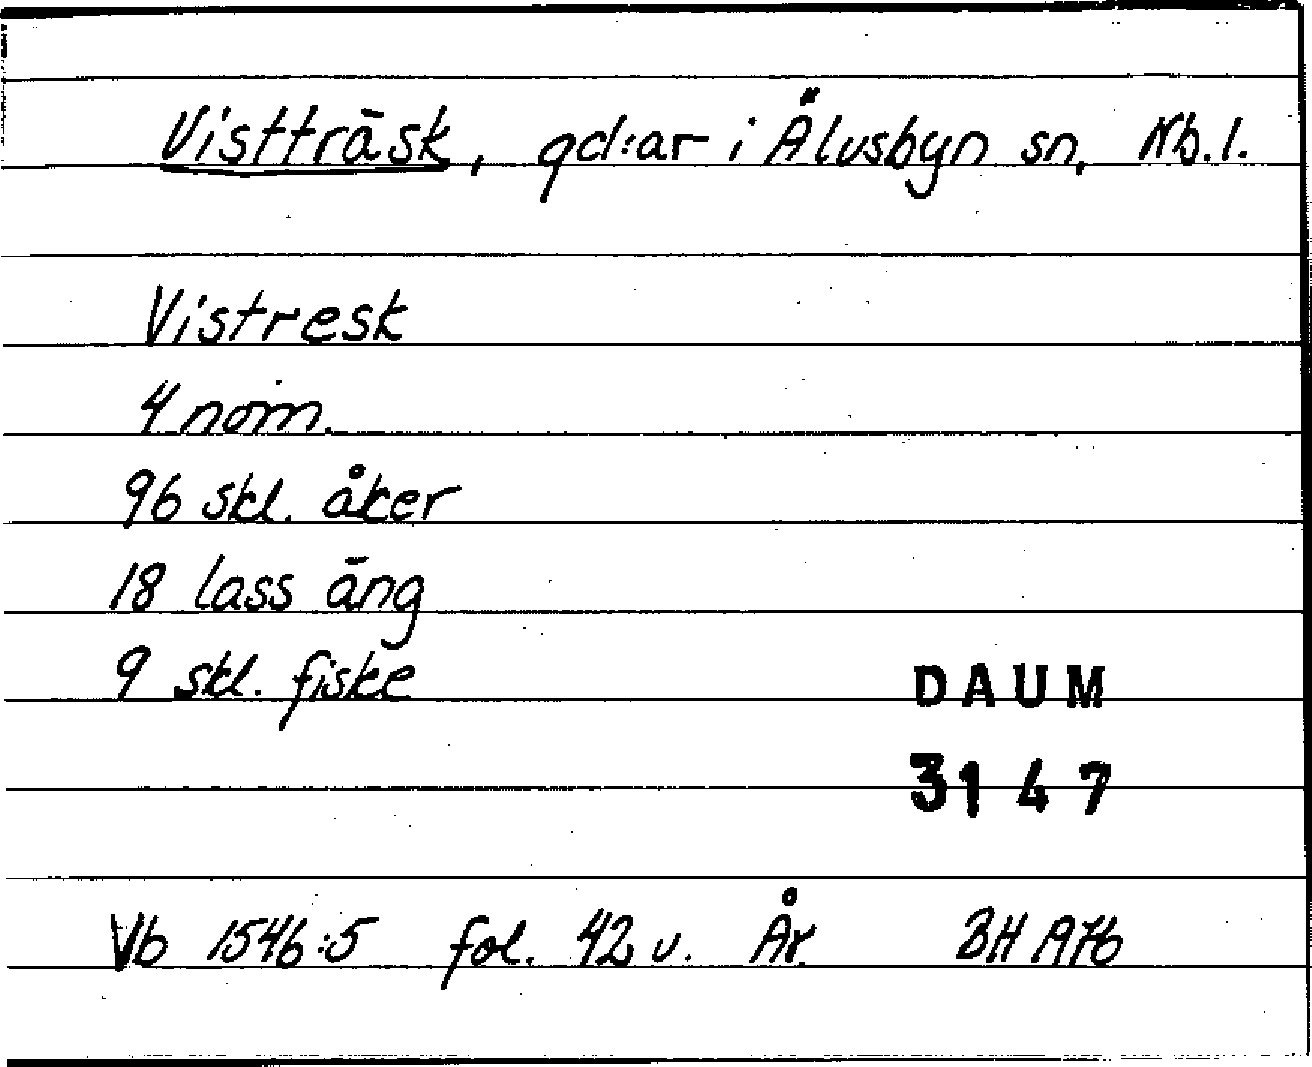 Vistträsk, gd:ar i Älvsbyn sn, Nb.l.
Vistresk
4 nom.
96 skl. åker
18 lass äng
9 skl. fiske
DAUM
3147
Vb 1546:5 fol. 42 v. År. BH A76